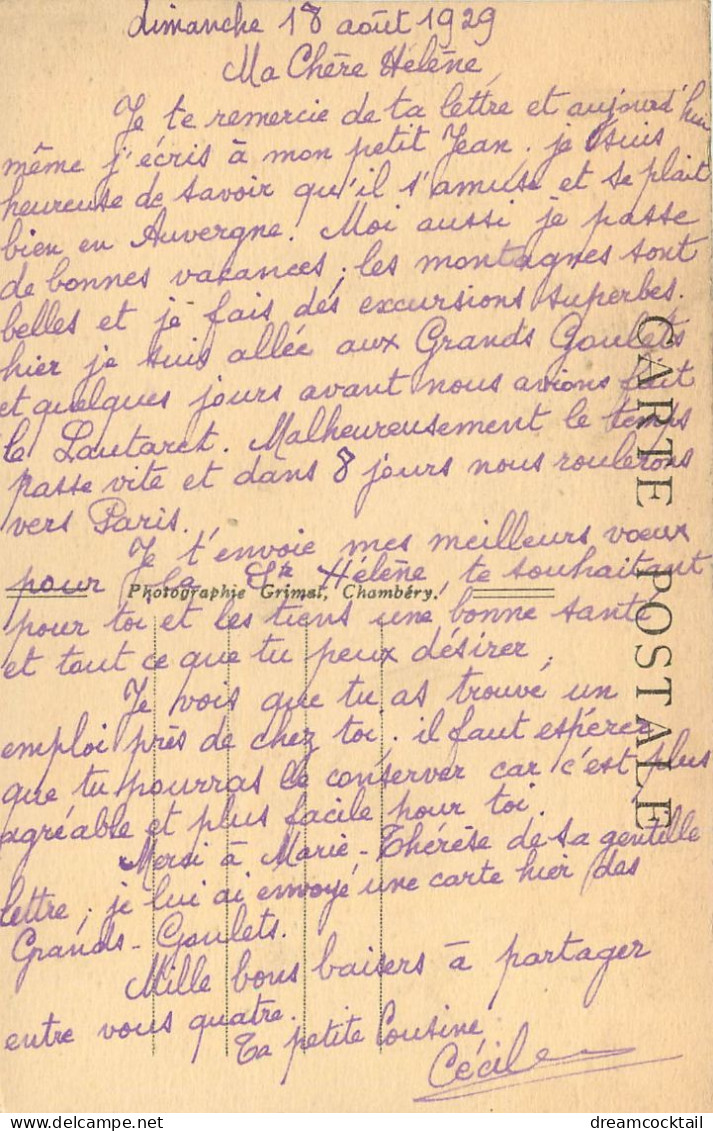 dimanche 18 août 1929
Ma Chère Hélène,
Je te remercie de ta lettre et aujourd'hui
même j'écris à mon petit Jean. je suis
heureuse de savoir qu'il s'amuse et se plait
bien en Auvergne. Moi aussi je passe
de bonnes vacances ; les montagnes sont
belles et je fais des excursions superbes.
hier je suis allée aux Grands Goulets
et quelques jours avant nous avions fait
le Lautaret. Malheureusement le temps
passe vite et dans 8 jours nous roulerons
vers Paris.
Je t'envoie mes meilleurs vœux
pour la Ste Hélène, te souhaitant
Photographie Grimal, Chambéry.
pour toi et les tiens une bonne santé
et tout ce que tu peux désirer.
Je vois que tu as trouvé un
emploi près de chez toi. il faut espérer
que tu pourras le conserver car c'est plus
agréable et plus facile pour toi.
Merci à Marie-Thérèse de sa gentille
lettre ; je lui ai envoyé une carte hier des
Grands-Goulets.
Mille bons baisers à partager
entre vous quatre.
Ta petite Cousine,
Cécile
CARTE POSTALE
dreamcocktail